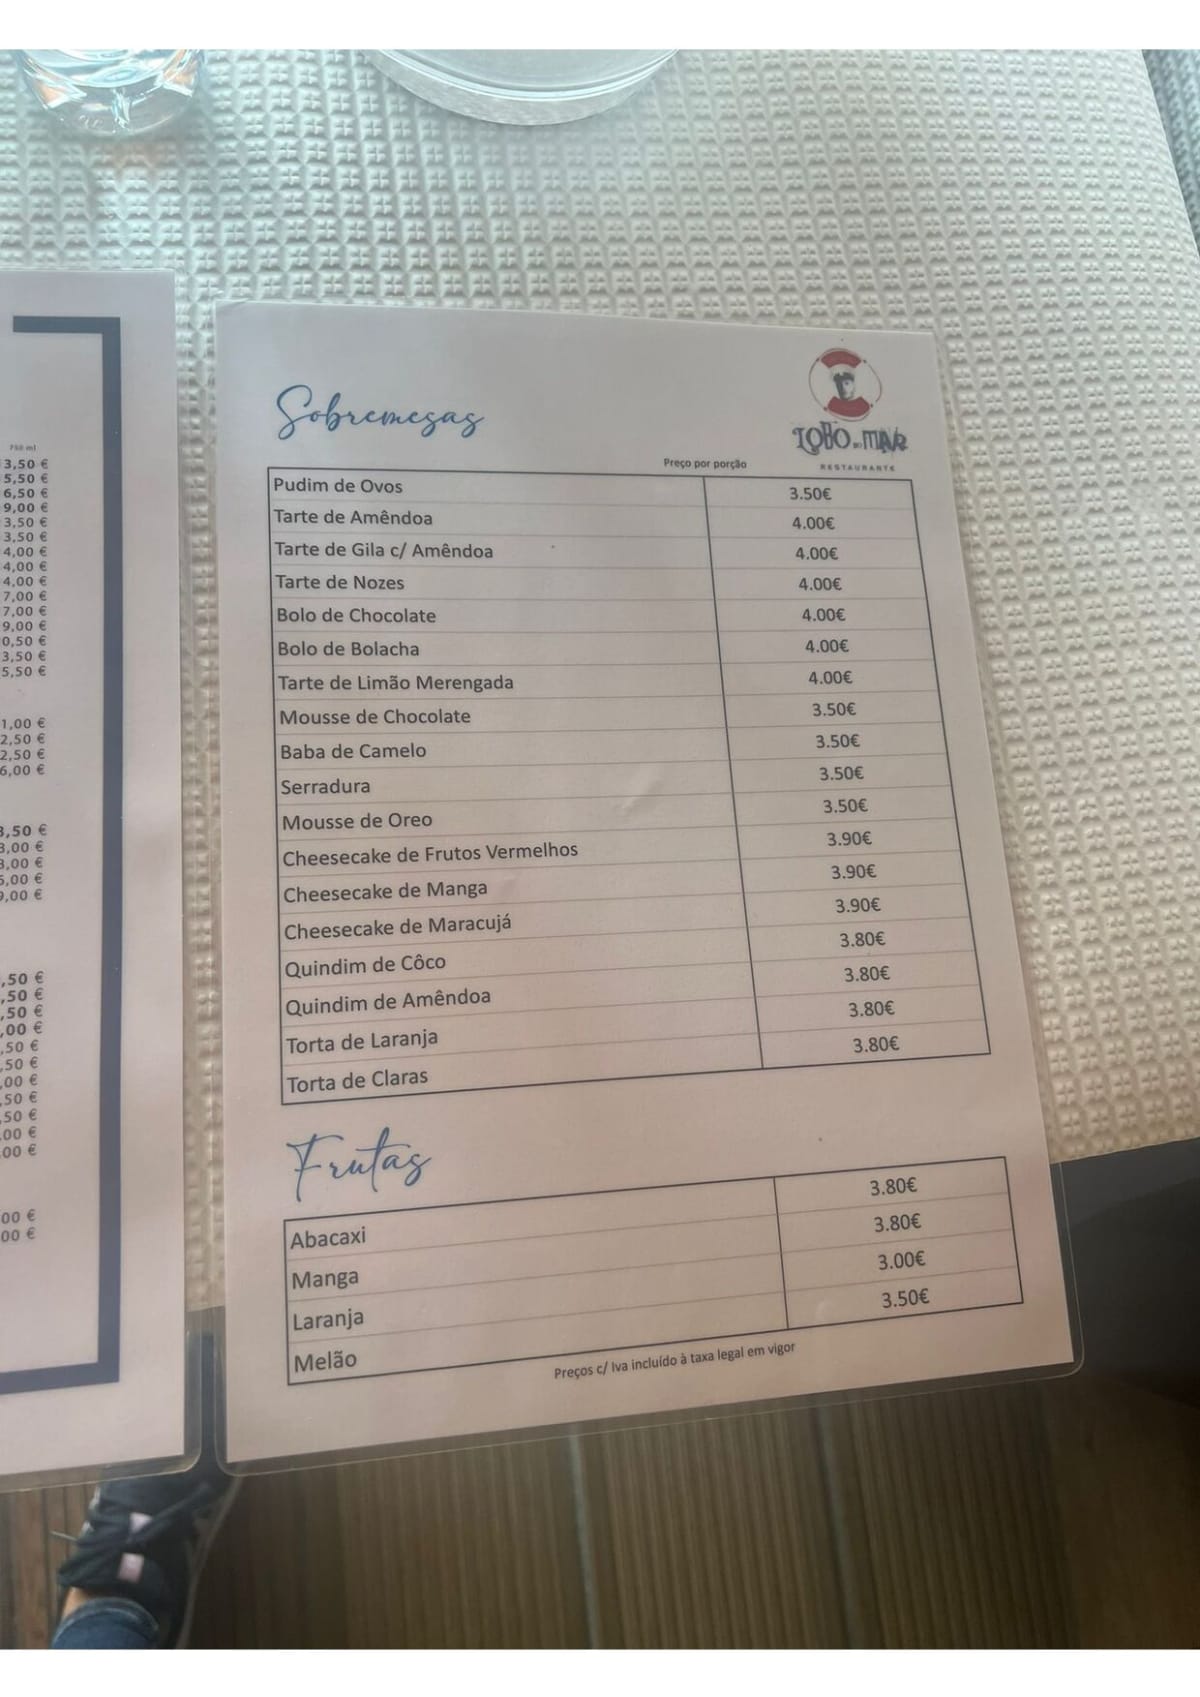 750 ml
3,50 €
5,50 €
6,50 €
9,00 €
3,50 €
3,50 €
4,00 €
4,00 €
4,00 €
7,00 €
7,00 €
9,00 €
0,50 €
3,50 €
5,50 €
1,00 €
2,50 €
2,50 €
6,00 €
3,50 €
3,00 €
3,00 €
,00 €
9,00 €
,50 €
,50 €
,50 €
,00 €
,50 €
,50 €
,00 €
,50 €
,50 €
,00 €
,00 €
00 €
00 €
Sobremesas
LOBO DO MAR
RESTAURANTE
Preço por porção
Pudim de Ovos 3.50€
Tarte de Amêndoa 4.00€
Tarte de Gila c/ Amêndoa 4.00€
Tarte de Nozes 4.00€
Bolo de Chocolate 4.00€
Bolo de Bolacha 4.00€
Tarte de Limão Merengada 4.00€
Mousse de Chocolate 3.50€
Baba de Camelo 3.50€
Serradura 3.50€
Mousse de Oreo 3.50€
Cheesecake de Frutos Vermelhos 3.90€
Cheesecake de Manga 3.90€
Cheesecake de Maracujá 3.90€
Quindim de Côco 3.80€
Quindim de Amêndoa 3.80€
Torta de Laranja 3.80€
Torta de Claras 3.80€
Frutas
Abacaxi 3.80€
Manga 3.80€
Laranja 3.00€
Melão 3.50€
Preços c/ Iva incluído à taxa legal em vigor